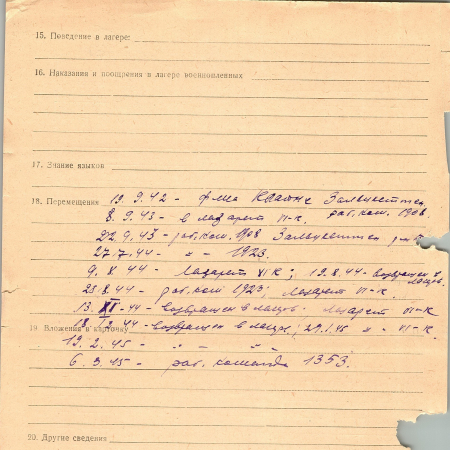 15. Поведение в лагере:
16. Наказания и поощрения в лагере военнопленных
17. Знание языков
18. Перемещения 19.9.42 -
8.9.43 - в лазарет VI-К. раб. ком. 1908
22.9.43 - раб. ком. 1908
27.IV.44 - " - 1923.
9.8.44 - Лазарет VI К; 19.8.44 - возвращен в
лагерь.
23.8.44 - раб. ком 1923; Лазарет VI-К.
13. XI-44 - возвращен в лагерь. Лазарет VI-К
возвращен в лагерь; 29.1.45 " - VI-К.
19. Вложения в карточку
19.2.45 - " - " -
6.3.45 - раб. команда 1353.
20. Другие сведения